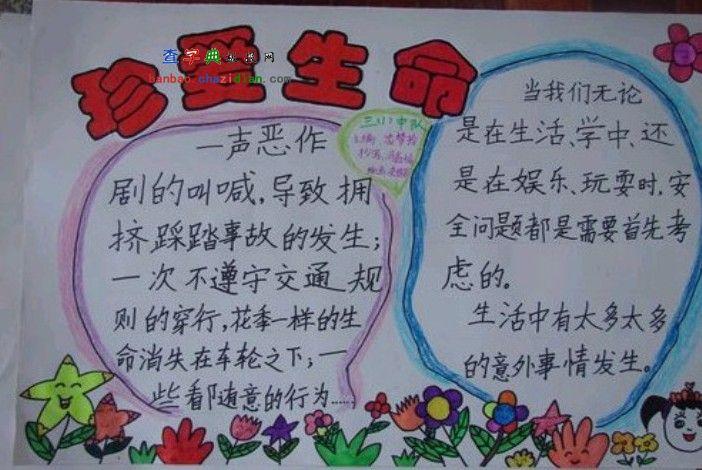 查字典板报网
banbao.chazidian.com
珍爱生命
三(1)中队
一声恶作
剧的叫喊,导致拥
挤踩踏事故的发生;
一次不遵守交通规
则的穿行,花季一样的生
命消失在车轮之下;一
些看似随意的行为……
当我们无论
是在生活、学中、还
是在娱乐、玩耍时,安
全问题都是需要首先考
虑的。
生活中有太多太多
的意外事情发生。